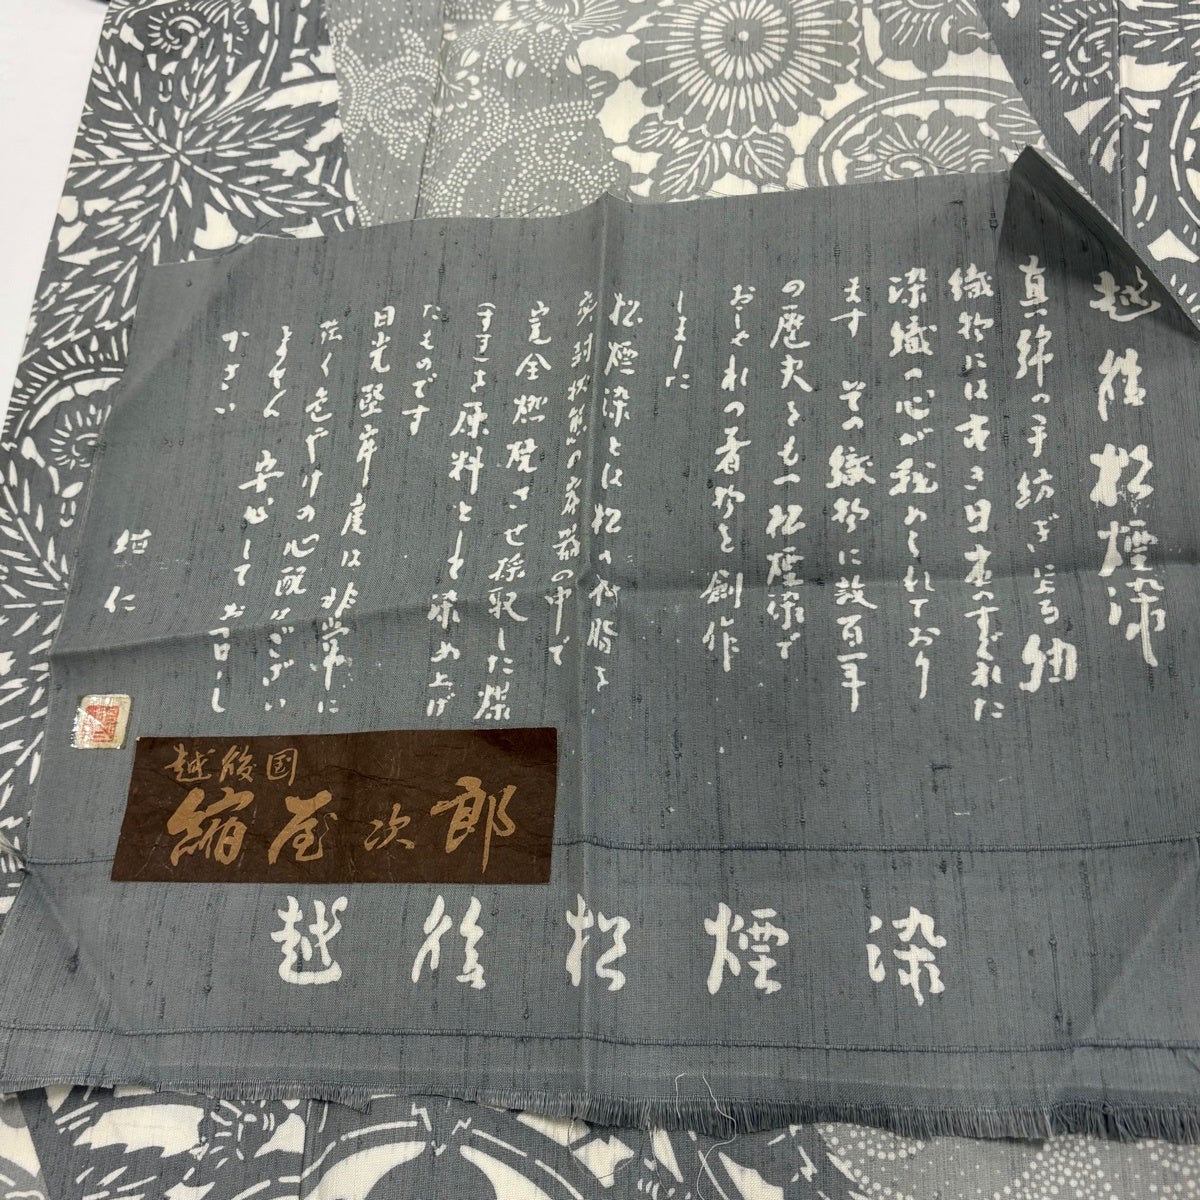 越後松煙染
真綿の手紡ぎによる紬
織物には古き日本のすぐれた
染織の心が秘められており
ます その織物に数百年
の歴史をもつ松煙染で
おしゃれの着物を創作
しました
松煙染とは松の樹脂を
密封状態の容器の中で
完全燃焼させ採取した煤
(すす)を原料として染め上げ
たものです
日光堅牢度は非常に
強く色やけの心配はござい
ません 安心してお召し
下さい
越後国
縮屋次郎
越後松煙染